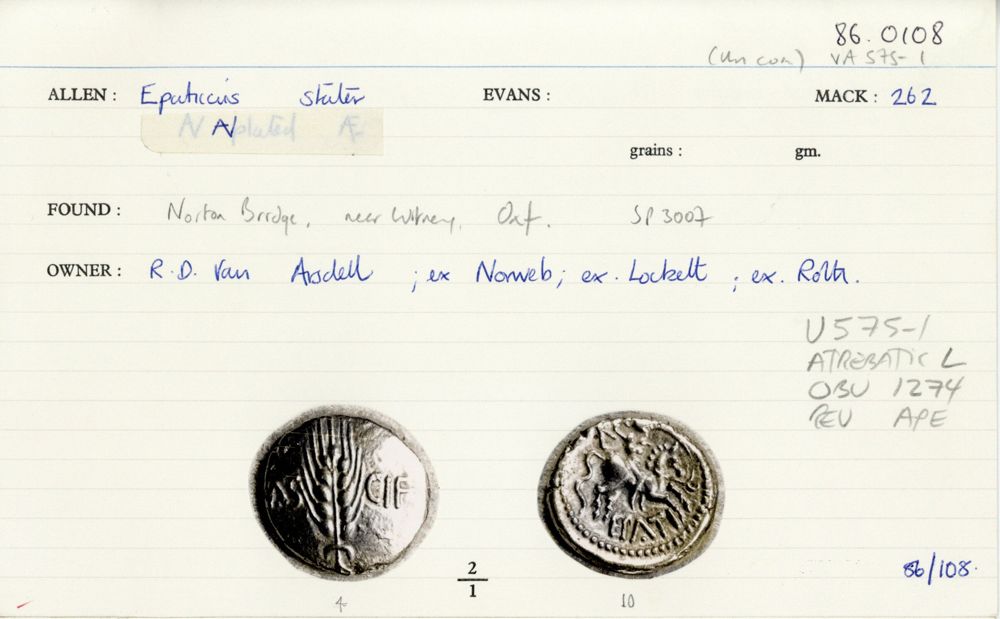 86.0108
(Un con) VA 575-1
ALLEN : Epaticcus stater EVANS : MACK : 262
plated Æ
grains : gm.
FOUND : Norton Bridge, near Witney, Oxf. SP 3007
OWNER : R.D. Van Arsdell ; ex Norweb; ex. Lockett ; ex. Roth.
U575-1
ATREBATIC L
OBV 1274
REV APE
CIF
2
1
4 10
86/108.